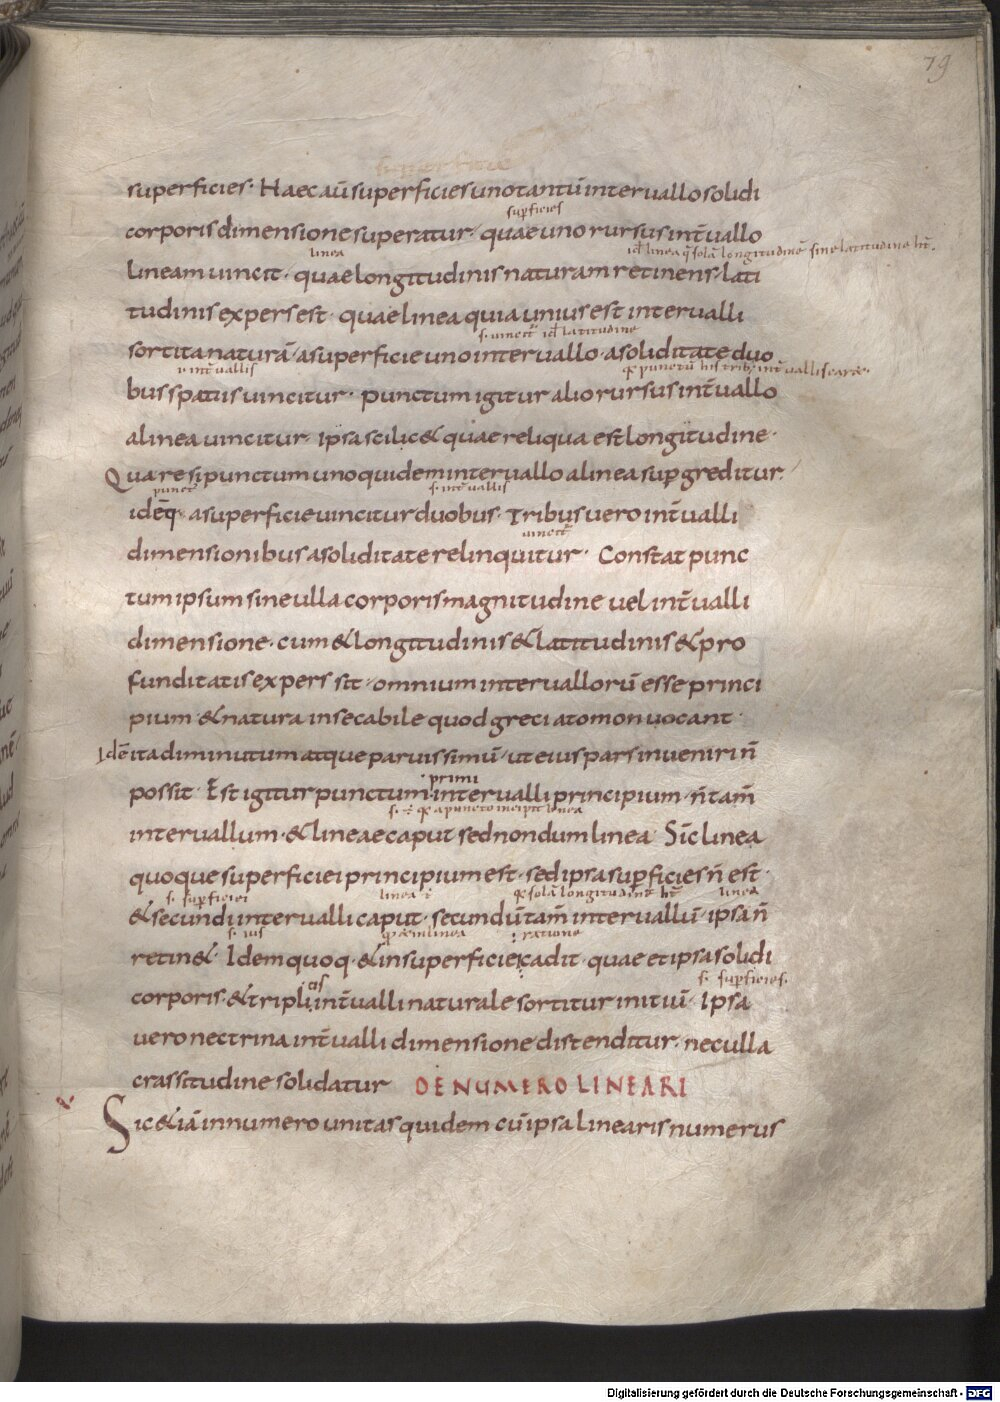 79
superficies· Haec aū superficies uno tantū interuallo solidi
suꝑficies
corporis dimensione superatur· quae uno rursus int̄uallo
linea
id linea q̄ solā longitudinē sine latitudine ht̄·
lineam uincit· quae longitudinis naturam retinens· lati
tudinis expers est· quae linea quia unius est interualli
s· uincit̄ id latitudine
sortita naturā· a superficie uno interuallo· a soliditate duo
int̄uallis
punctū his tribꝫ int̄uallis caret·
bus spatiis uincitur· punctum igitur alio rursus int̄uallo
a linea uincitur· ipsa scilic& quae reliqua est longitudine·
Quare si punctum uno quidem interuallo a linea supgreditur·
punct̄
s· int̄uallis
idēq· a superficie uincitur duobus· Tribus uero int̄ualli
uincit̄
dimensionibus a soliditate relinquitur· Constat punc
tum ipsum sine ulla corporis magnitudine uel int̄ualli
dimensione· cum & longitudinis & latitudinis & pro
funditatis expers sit· omnium interuallorū esse princi
pium· & natura insecabile quod greci atomon uocant·
Idē ita diminutum atque paruissimū· ut eius pars inueniri n̄
primi
possit· Est igitur punctum interualli principium· n̄ tam̄
s· a puncto incipit linea
interuallum· & lineae caput sed nondum linea· Sic linea
quoque superficiei principium est· sed ipsa supficies n̄ est·
s· suꝑficiei
linea
solā longitudinē ht̄
linea
& secundi interualli caput· secundū tam̄ interuallū· ipsa n̄
linea
ratione
retin&· Idem quoq· & in superficie cadit· quae et ipsa solidi
s· suꝑficies·
corporis· & triplicis int̄ualli naturale sortitur initiū· Ipsa
uero nec trina int̄ualli dimensione distenditur· nec ulla
crassitudine solidatur DE NUMERO LINEARI
Sic & iā in numero unitas quidem cū ipsa linearis numerus
Digitalisierung gefördert durch die Deutsche Forschungsgemeinschaft - DFG